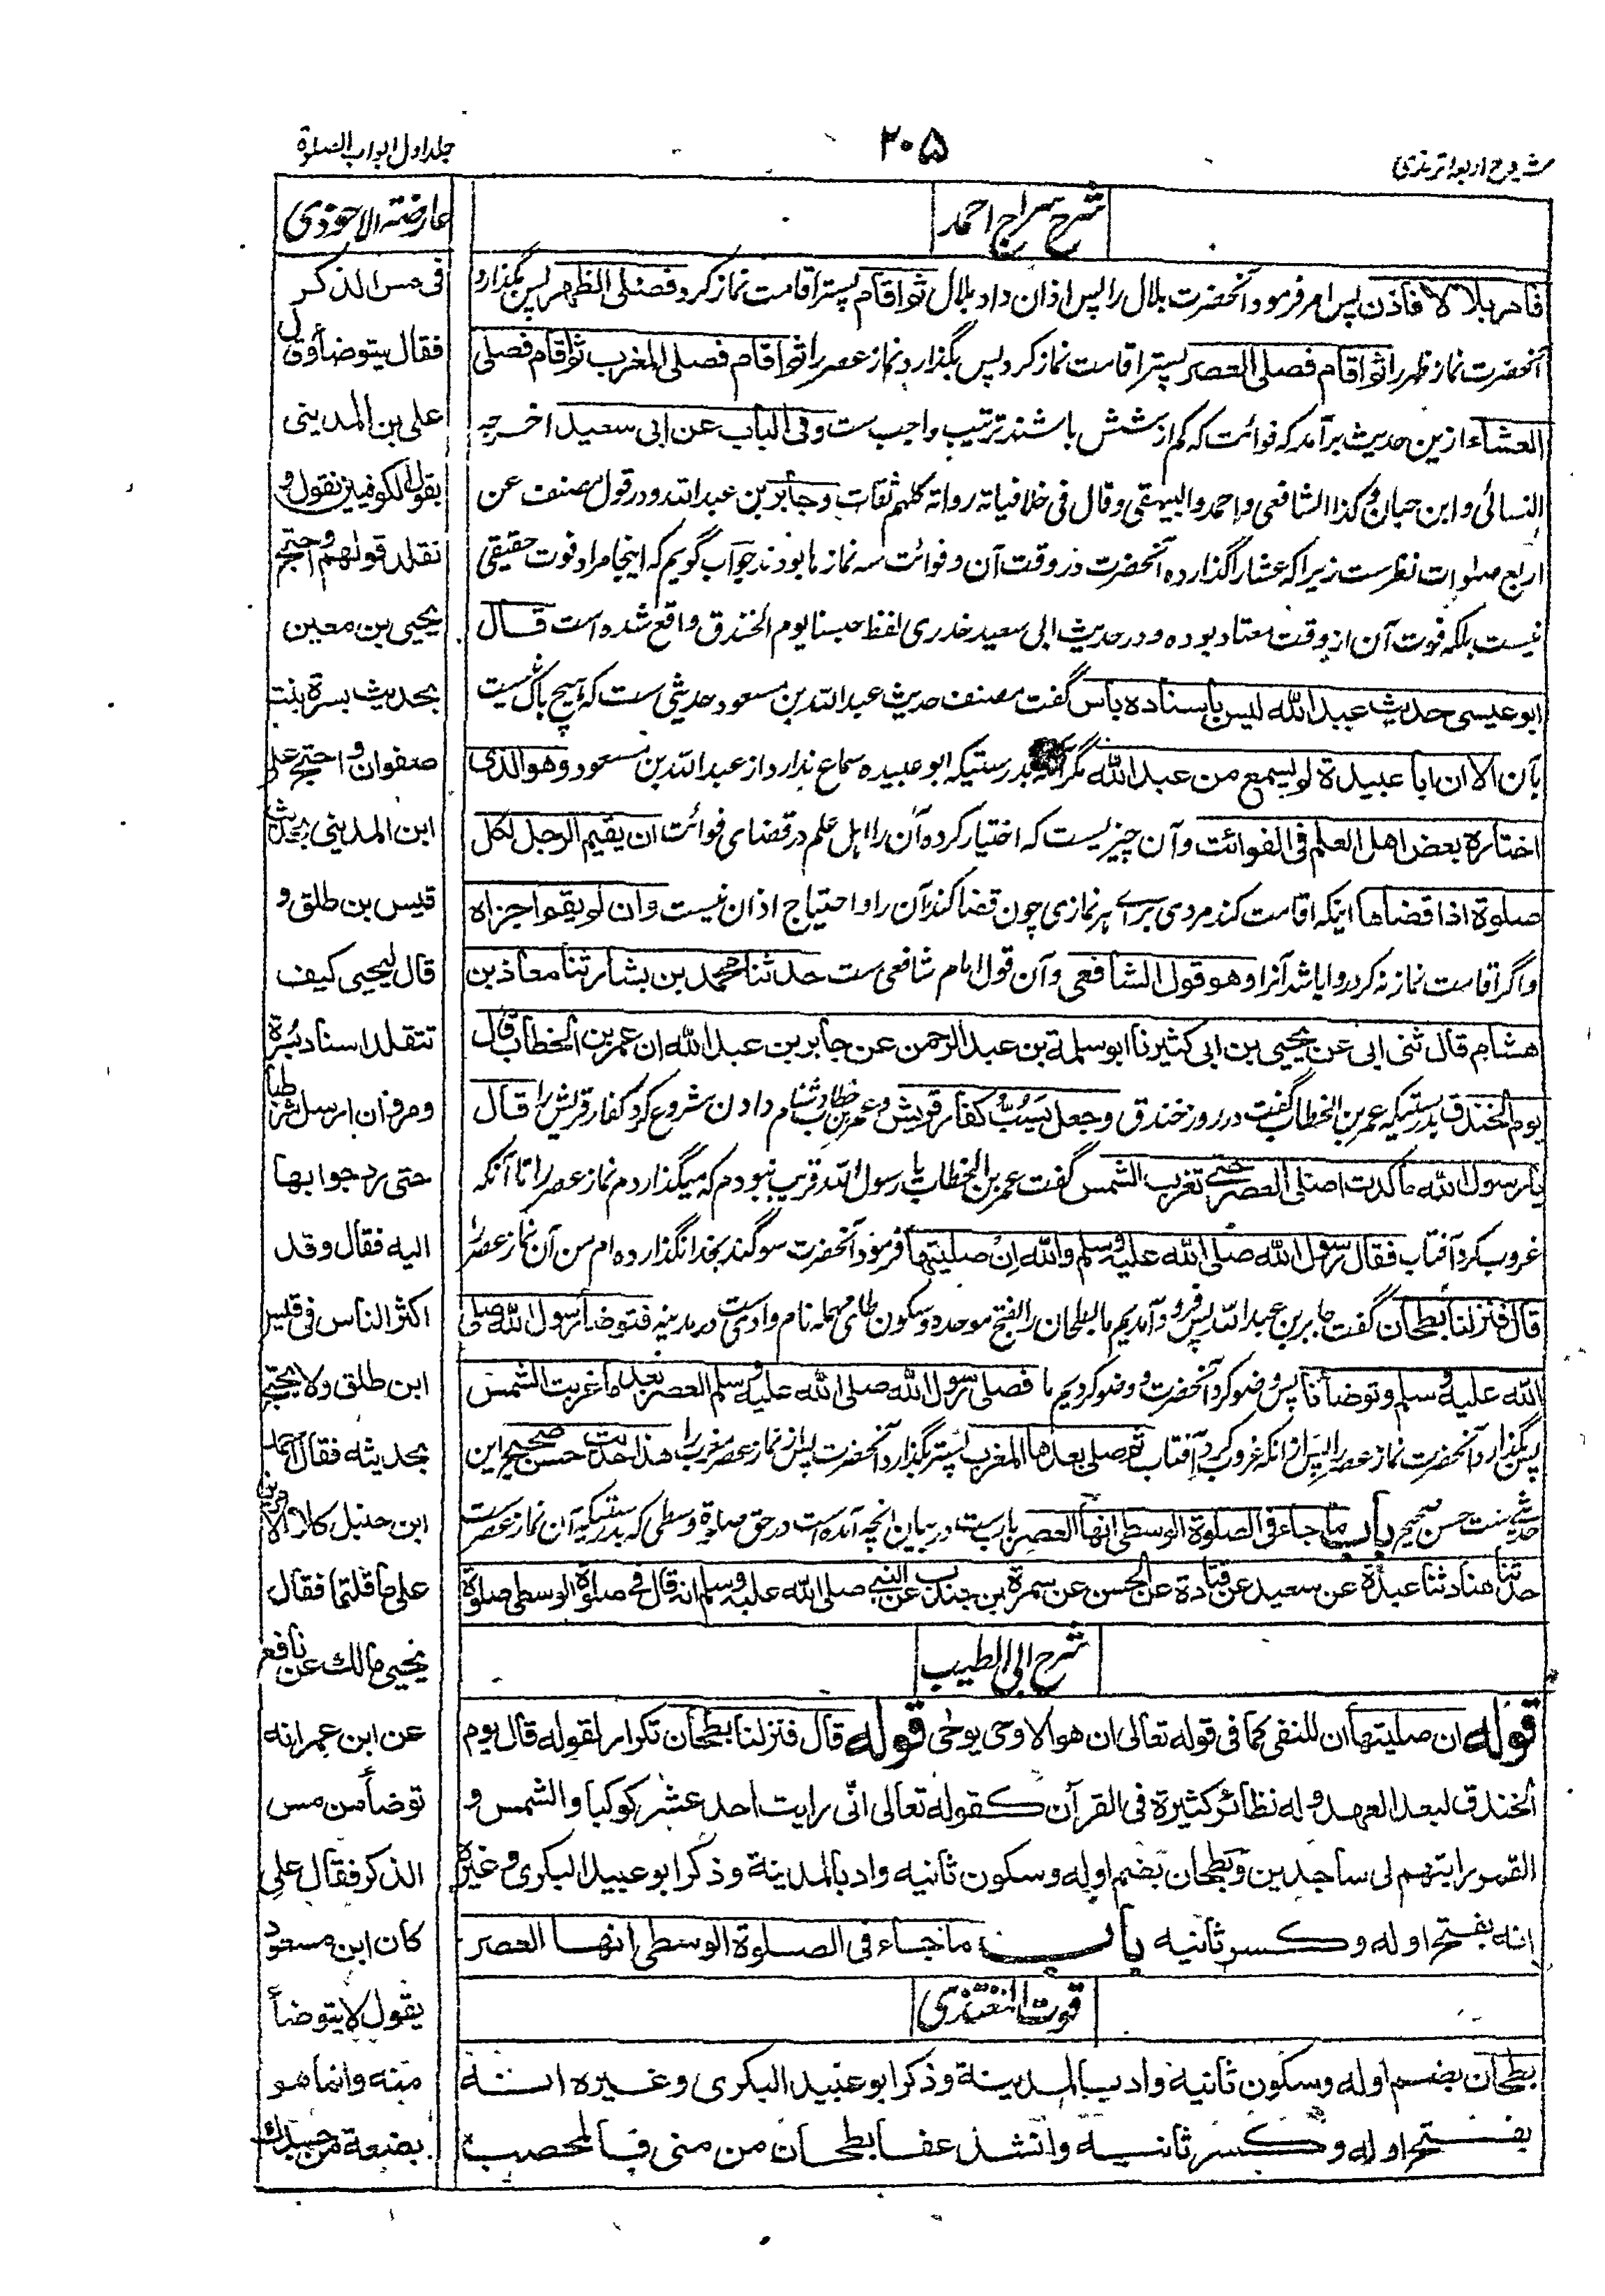 شروح اربعہ ترمذی
۲۰۵
جلد اول ابواب الصلوة
شرح سراج احمد
فامر بلالا فاذن پس امر فرمود آنحضرت بلال را پس اذان داد بلال ثم اقام پستر اقامت نماز کرد فصلی الظهر پس بگذارد
آنحضرت نماز ظهر را ثم اقام فصلی العصر پستر اقامت نماز کرد پس بگذارد نماز عصر را ثم اقام فصلی المغرب ثم اقام فصلی
العشاء ازین حدیث برآمد که فوائت که کم از شش باشند ترتیب واجب ست وفی الباب عن ابی سعید اخرجه
النسائی وابن حبان وکذا الشافعی واحمد والبیهقی وقال فی خلافیاته رواته کلهم ثقات وجابر بن عبد الله ودر قول مصنف عن
اربع صلوات نظرست زیرا که عشا را گذارده آنحضرت در وقت آن وفوائت سه نماز ها بودند جواب گویم که اینجا مراد فوت حقیقی
نیست بلکه فوت آن از وقت معتاد بوده ودر حدیث ابی سعید خدری لفظ حبسنا یوم الخندق واقع شده است قال
ابو عیسی حدیث عبد الله لیس باسناده باس گفت مصنف حدیث عبد الله بن مسعود حدیثی است که هیچ باک نیست
بآن الا ان ابا عبیدة لم یسمع من عبد الله مگر آنکه بدرستیکه ابو عبیده سماع ندارد از عبد الله بن مسعود وهو الذی
اختاره بعض اهل العلم فی الفوائت وآن چیزیست که اختیار کرده آن را اهل علم در قضای فوائت ان یقیم الرجل لکل
صلوة اذا قضاها اینکه اقامت کند مردی برای هر نمازی چون قضا کند آن را واحتیاج اذان نیست وان لم یقم اجزاه
واگر اقامت نماز نه کرد روا باشد آنرا وهو قول الشافعی وآن قول امام شافعی ست حدثنا محمد بن بشار ثنا معاذ بن
هشام قال ثنی ابی عن یحیی بن ابی کثیر نا ابو سلمة بن عبد الرحمن عن جابر بن عبد الله ان عمر بن الخطاب قال
یوم الخندق بدرستیکه عمر بن الخطاب گفت در روز خندق وجعل یسب کفار قریش وعمر بن خطاب دشنام دادن شروع کرد کفار قریش را قال
یا رسول الله ما کدت اصلی العصر حتی تغرب الشمس گفت عمر بن الخطاب یا رسول الله قریب نبودم که میگذاردم نماز عصر را تا آنکه
غروب کرد آفتاب فقال رسول الله صلی الله علیه وسلم والله ان صلیتها فرمود آنحضرت سوگند بخدا نگذارده ام من آن نماز عصر را
قال فنزلنا بطحان گفت جابر بن عبد الله پس فرود آمدیم ما بطحان را بفتح موحده وسکون طای مهمله نام وادی ست در مدینه فتوضأ رسول الله صلی
الله علیه وسلم وتوضأنا پس وضو کرد آنحضرت ووضو کردیم ما فصلی رسول الله صلی الله علیه وسلم العصر بعد ما غربت الشمس
پس بگذارد آنحضرت نماز عصر را پس از آنکه غروب کرد آفتاب ثم صلی بعدها المغرب پستر بگذارد آنحضرت پس از نماز عصر مغرب را هذا حدیث حسن صحیح این
حدیثی ست حسن صحیح باب ما جاء فی الصلوة الوسطی انها العصر باب ست در بیان انچه آمده است در حق صلوة وسطی که بدرستیکه آن نماز عصرست
حدثنا هناد ثنا عبدة عن سعید عن قتادة عن الحسن عن سمرة بن جندب عن النبی صلی الله علیه وسلم انه قال فی صلوة الوسطی صلوة
شرح ابی الطیب
قوله ان صلیتها ان للنفی کما فی قوله تعالی ان هو الا وحی یوحی قوله قال فنزلنا بطحان تکرار لقوله قال یوم
الخندق لبعد العهد وله نظائر کثیرة فی القرآن کقوله تعالی انی رایت احد عشر کوکبا والشمس و
القمر رایتهم لی ساجدین وبطحان بضم اوله وسکون ثانیه واد بالمدینة وذکر ابو عبید البکری وغیره
انه بفتح اوله وکسر ثانیه باب ما جاء فی الصلوة الوسطی انها العصر
قوت المغتذی
بطحان بضم اوله وسکون ثانیه واد بالمدینة وذکر ابو عبید البکری وغیره انه
بفتح اوله وکسر ثانیه وانشد عفا بطحان من منی فالمحصب
عارضة الاحوذی
فی مس الذکر
فقال یتوضأ وقال
علی بن المدینی
بقول الکوفیین نقول و
نقلد قولهم واحتج
یحیی بن معین
بحدیث بسرة بنت
صفوان واحتج علی
ابن المدینی بحدیث
قیس بن طلق و
قال لیحیی کیف
تتقلد اسناد بسرة
ومروان ارسل شرطیا
حتی رد جوابها
الیه فقال وقد
اکثر الناس فی قیس
ابن طلق ولا یحتج
بحدیثه فقال احمد
ابن حنبل کلا الامرین
علی ما قلتما فقال
یحیی مالك عن نافع
عن ابن عمر انه
توضأ من مس
الذکر فقال علی
کان ابن مسعود
یقول لا یتوضأ
منه وانما هو
بضعة من جسدك